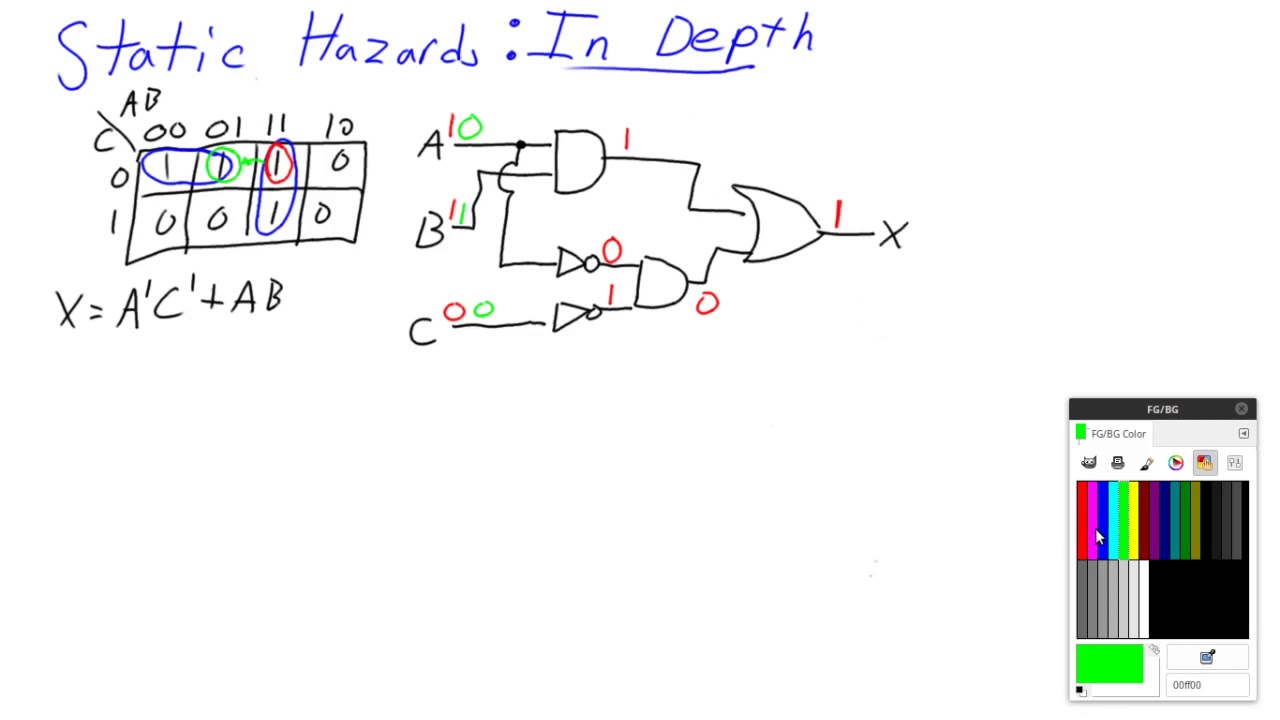 Static Hazards: In Depth
AB
C 00 01 11 10
0 1 1 1 0
1 0 0 1 0
X = A'C' + AB
A 1 0 1
B 1 1
1 X
0
1
C 0 0 0
FG/BG
FG/BG Color
00ff00